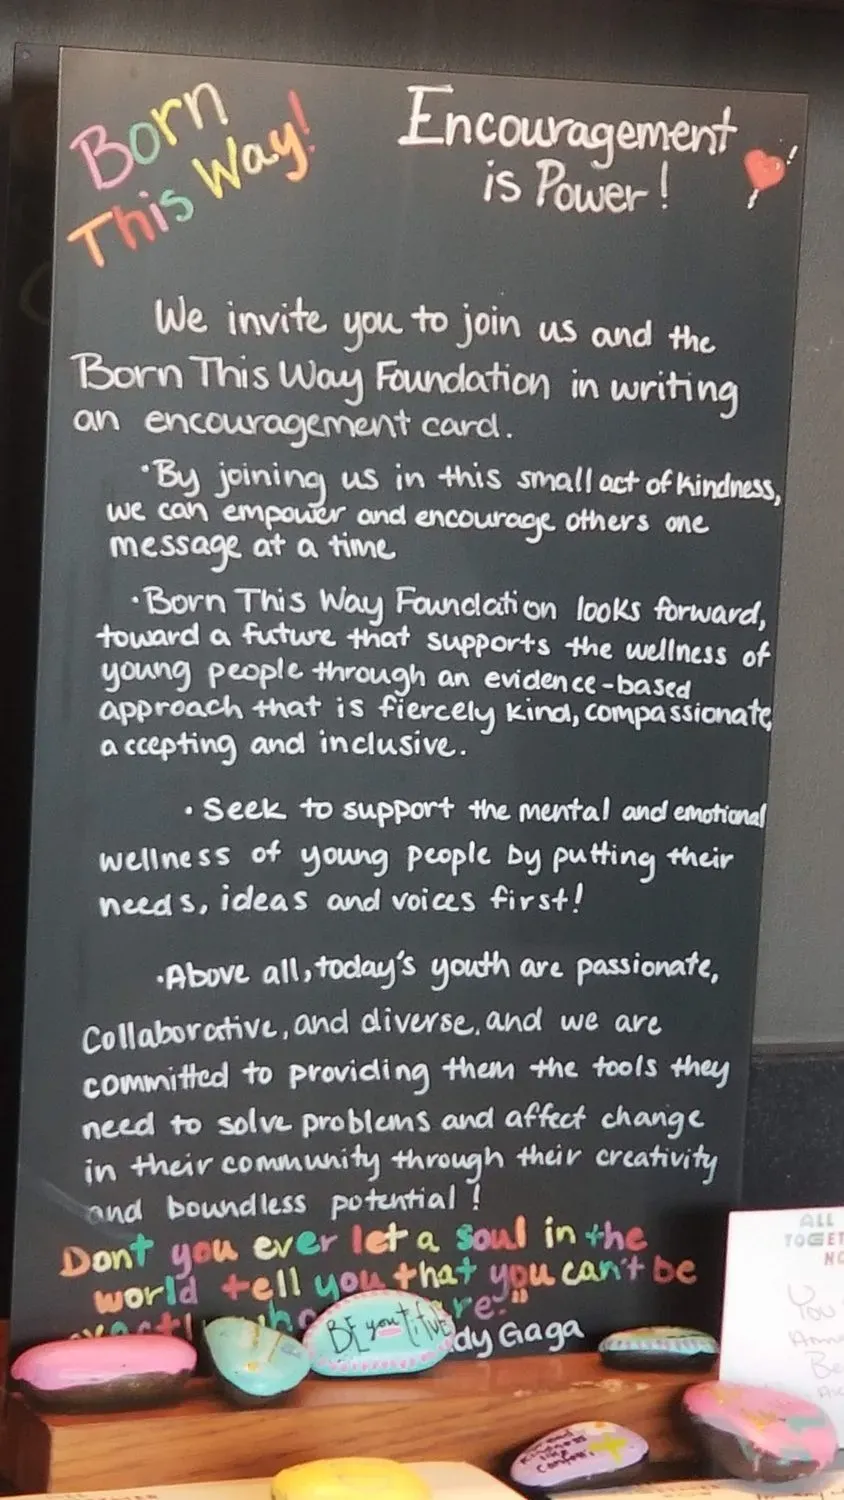 Born
This Way!
Encouragement
is Power!
We invite you to join us and the
Born This Way Foundation in writing
an encouragement card.
·By joining us in this small act of kindness,
we can empower and encourage others one
message at a time
·Born This Way Foundation looks forward,
toward a future that supports the wellness of
young people through an evidence-based
approach that is fiercely kind, compassionate,
accepting and inclusive.
· Seek to support the mental and emotional
wellness of young people by putting their
needs, ideas and voices first!
·Above all, today's youth are passionate,
Collaborative, and diverse, and we are
committed to providing them the tools they
need to solve problems and affect change
in their community through their creativity
and boundless potential!
Dont you ever let a soul in the
world tell you that you can't be
re."
dy Gaga
BE you tiful
ALL
TOGET
NO
You
Be
kindness
like